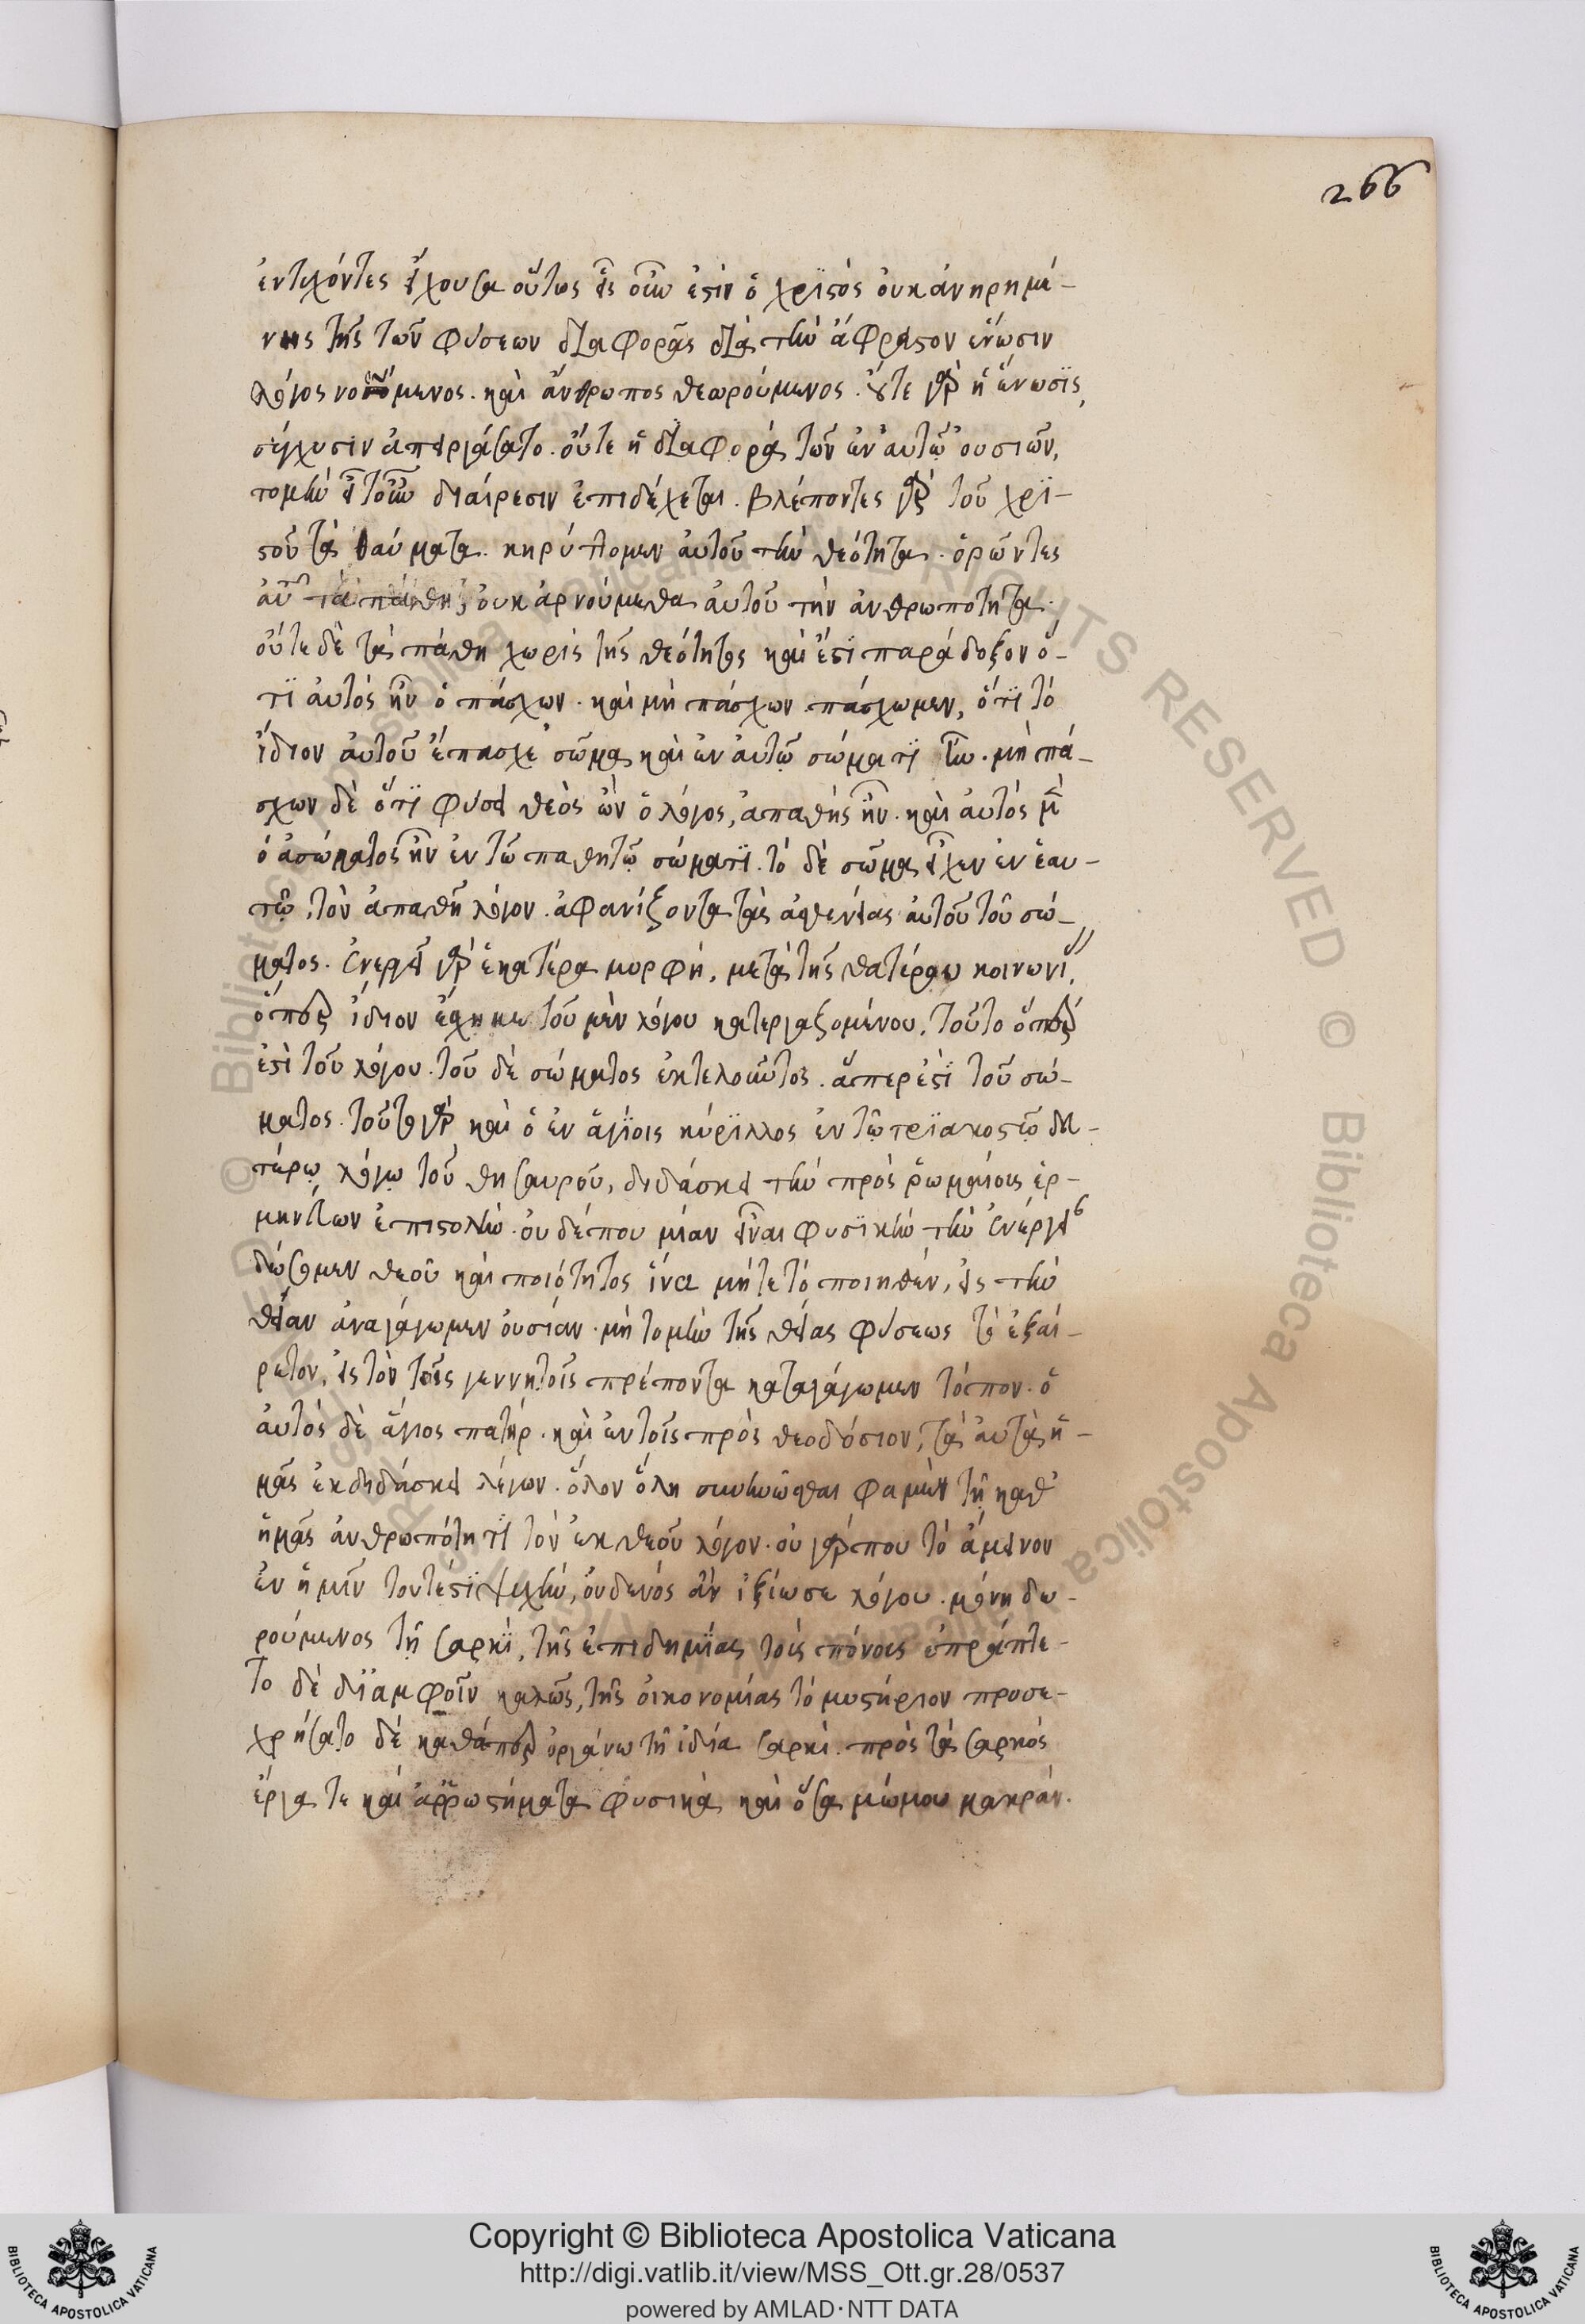 266
ἐντυχόντες ἔχουσα οὕτως εἷς οὖν ἐστὶν ὁ χριστὸς οὐκ ἀνηρημέ-
νης τῆς τῶν φύσεων διαφορᾶς διὰ τὴν ἄφραστον ἕνωσιν
λόγος νοούμενος. καὶ ἄνθρωπος θεωρούμενος. οὔτε γὰρ ἡ ἕνωσις,
σύγχυσιν ἀπειργάσατο. οὔτε ἡ διαφορὰ τῶν ἐν αὐτῷ οὐσιῶν,
τομὴν εἴτουν διαίρεσιν ἐπιδέχεται. βλέποντες γὰρ τοῦ χρι-
στοῦ τὰ θαύματα. κηρύττομεν αὐτοῦ τὴν θεότητα. ὁρῶντες
αὐτοῦ τὰ πάθη, οὐκ ἀρνούμεθα αὐτοῦ τὴν ἀνθρωπότητα.
οὔτε δὲ τὰ πάθη χωρὶς τῆς θεότητος καὶ ἔστι παράδοξον ὅ-
τι αὐτὸς ἦν ὁ πάσχων. καὶ μὴ πάσχων πάσχωμεν, ὅτι τὸ
ἴδιον αὐτοῦ ἔπασχε σῶμα καὶ ἐν αὐτῷ σώματι ἦν. μὴ πά-
σχων δὲ ὅτι φύσει θεὸς ὢν ὁ λόγος, ἀπαθὴς ἦν. καὶ αὐτὸς μὲν
ὁ ἀσώματος ἦν ἐν τῷ παθητῷ σώματι. τὸ δὲ σῶμα εἶχεν ἐν ἑαυ-
τῷ, τὸν ἀπαθῆ λόγον. ἀφανίζοντα τὰς ἀσθενείας αὐτοῦ τοῦ σώ-
ματος. ἐνεργεῖ γὰρ ἑκατέρα μορφή, μετὰ τῆς θατέρου κοινωνί,
ὅπερ ἴδιον ἔσχηκε τοῦ μὲν λόγου κατεργαζομένου, τοῦτο ὅπερ
ἐστὶ τοῦ λόγου. τοῦ δὲ σώματος ἐκτελοῦντος. ἅπερ ἐστὶ τοῦ σώ-
ματος. ταῦτα γὰρ καὶ ὁ ἐν ἁγίοις κύριλλος ἐν τῷ τριακοστῷ δευ-
τέρῳ λόγῳ τοῦ θησαυροῦ, διδάσκει τὴν πρὸς ῥωμαίοις ἑρ-
μηνεύων ἐπιστολὴν. οὐ δέπου μίαν εἶναι φυσικὴν τὴν ἐνέργειαν
δώσομεν θεοῦ καὶ ποιότητος ἵνα μήτε τὸ ποιηθέν, εἰς τὴν
θείαν ἀναγάγωμεν οὐσίαν. μὴ τομὴν τῆς θείας φύσεως τὸ ἐξαί-
ρετον, εἰς τὸν τοῖς γεννητοῖς πρέποντα καταγάγωμεν τόπον. ὁ
αὐτὸς δὲ ἅγιος πατήρ. καὶ ἐν τοῖς πρὸς θεοδόσιον, τὰ αὐτὰ ἡ-
μᾶς ἐκδιδάσκει λέγων. ὅλον ὅλη συνηνῶσθαι φαμὲν τῇ καθ
ἡμᾶς ἀνθρωπότητι τὸν ἐκ θεοῦ λόγον. οὐ γάρ που τὸ ἄμεινον
ἐν ἡμῖν τουτέστι ψυχὴν, οὐδενὸς ἂν ἠξίωσε λόγου. μόνῃ δω-
ρούμενος τῇ σαρκὶ, τῆς ἐπιδημίας τοὺς πόνους ἐπράττε-
το δὲ δι ἀμφοῖν καλῶς, τῆς οἰκονομίας τὸ μυστήριον προσε-
χρήσατο δὲ καθάπερ ὀργάνω τῇ ἰδία σαρκὶ. πρὸς τὰ σαρκὸς
ἔργα τε καὶ ἀρρωστήματα φυσικὰ καὶ ὅσα μώμου μακράν.
Copyright © Biblioteca Apostolica Vaticana
http://digi.vatlib.it/view/MSS_Ott.gr.28/0537
powered by AMLAD·NTT DATA